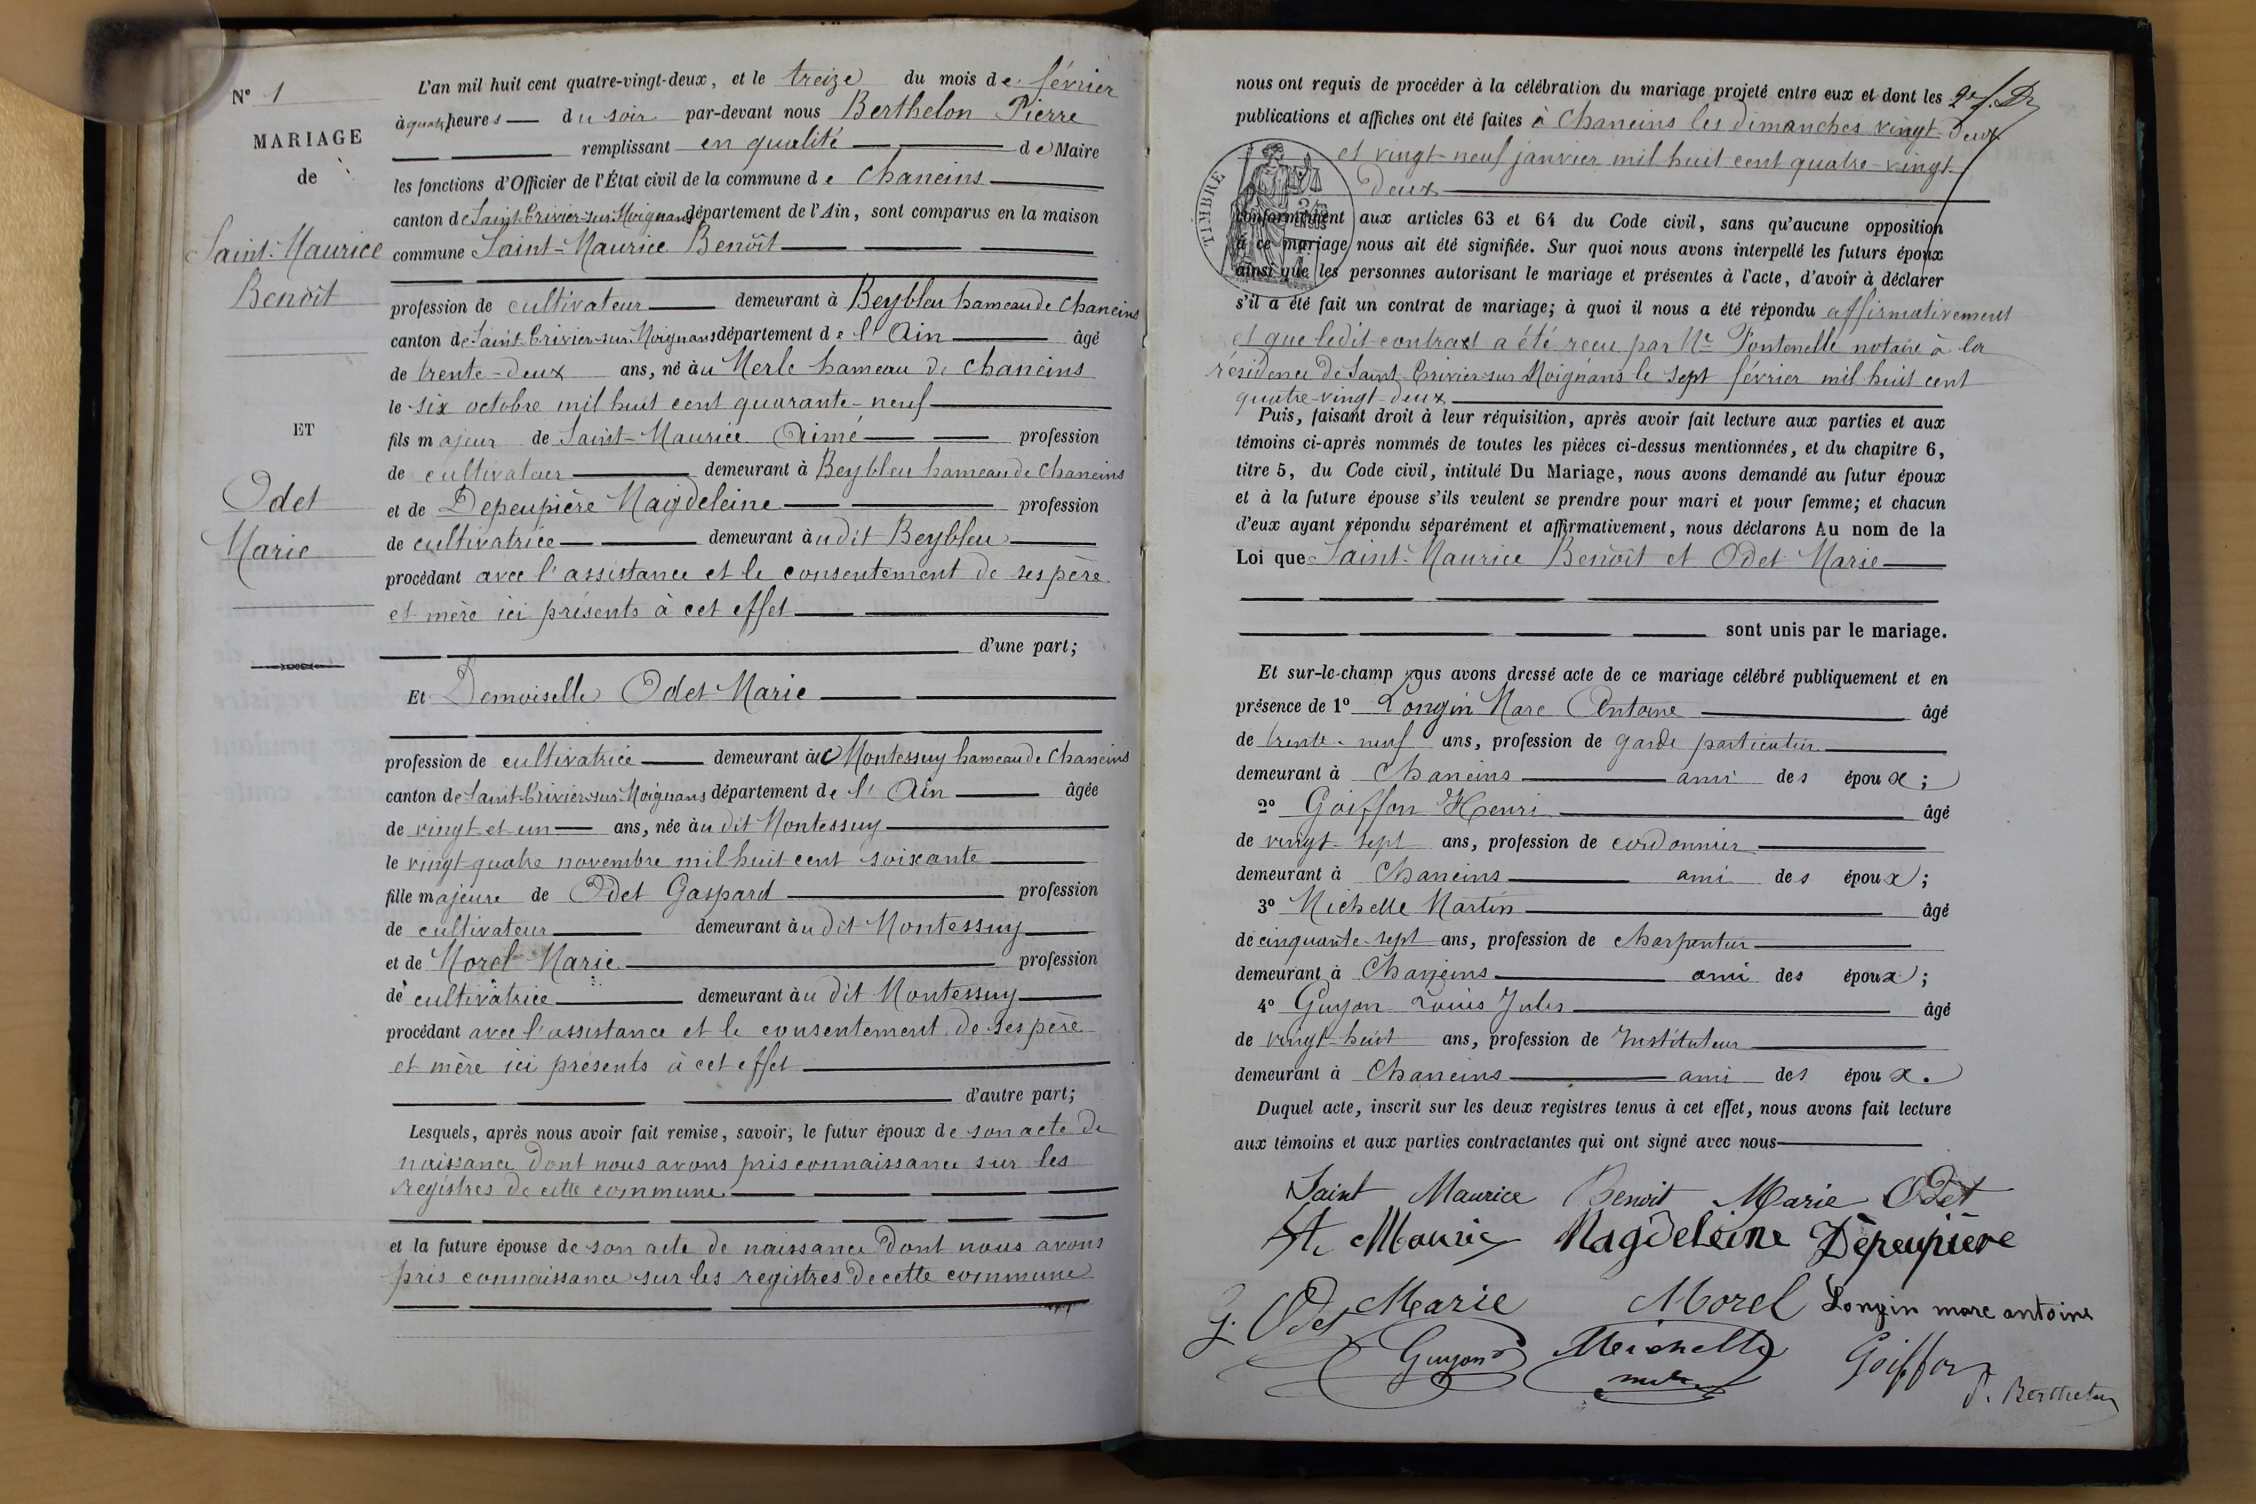 N° 1
MARIAGE
de
Saint-Maurice
Benoît
ET
Odet
Marie
L'an mil huit cent quatre-vingt-deux, et le treize du mois de février
à quatre heures du soir par-devant nous Berthelon Pierre
remplissant en qualité de Maire
les fonctions d'Officier de l'État civil de la commune de Chaneins
canton de Saint-Trivier-sur-Moignans département de l'Ain, sont comparus en la maison
commune Saint-Maurice Benoît
profession de cultivateur demeurant à Beybleu hameau de Chaneins
canton de Saint-Trivier-sur-Moignans département de l'Ain âgé
de trente-deux ans, né au Merle hameau de Chaneins
le six octobre mil huit cent quarante-neuf
fils majeur de Saint-Maurice Aimé profession
de cultivateur demeurant à Beybleu hameau de Chaneins
et de Depeupière Magdeleine profession
de cultivatrice demeurant àu dit Beybleu
procédant avec l'assistance et le consentement de ses père
et mère ici présents à cet effet
d'une part;
Et Demoiselle Odet Marie
profession de cultivatrice demeurant àu Montessuy hameau de Chaneins
canton de Saint-Trivier-sur-Moignans département de l'Ain âgée
de vingt et un ans, née àu dit Montessuy
le vingt quatre novembre mil huit cent soixante
fille majeure de Odet Gaspard profession
de cultivateur demeurant àu dit Montessuy
et de Morel Marie profession
de cultivatrice demeurant àu dit Montessuy
procédant avec l'assistance et le consentement de ses père
et mère ici présents à cet effet
d'autre part;
Lesquels, après nous avoir fait remise, savoir, le futur époux de son acte de
naissance dont nous avons pris connaissance sur les
registres de cette commune
et la future épouse de son acte de naissance dont nous avons
pris connaissance sur les registres de cette commune
nous ont requis de procéder à la célébration du mariage projeté entre eux et dont les
publications et affiches ont été faites à Chaneins les dimanches vingt-deux
et vingt-neuf janvier mil huit cent quatre-vingt
deux
TIMBRE
conformément aux articles 63 et 64 du Code civil, sans qu'aucune opposition
à ce mariage nous ait été signifiée. Sur quoi nous avons interpellé les futurs époux
ainsi que les personnes autorisant le mariage et présentes à l'acte, d'avoir à déclarer
s'il a été fait un contrat de mariage; à quoi il nous a été répondu affirmativement
et que ledit contrat a été reçu par Me Fontenelle notaire à la
résidence de Saint-Trivier-sur-Moignans le sept février mil huit cent
quatre-vingt-deux
Puis, faisant droit à leur réquisition, après avoir fait lecture aux parties et aux
témoins ci-après nommés de toutes les pièces ci-dessus mentionnées, et du chapitre 6,
titre 5, du Code civil, intitulé Du Mariage, nous avons demandé au futur époux
et à la future épouse s'ils veulent se prendre pour mari et pour femme; et chacun
d'eux ayant répondu séparément et affirmativement, nous déclarons Au nom de la
Loi que Saint-Maurice Benoît et Odet Marie
sont unis par le mariage.
Et sur-le-champ nous avons dressé acte de ce mariage célébré publiquement et en
présence de 1° Longin Marc Antoine âgé
de trente-neuf ans, profession de garde particulier
demeurant à Chaneins ami des époux;
2° Goiffon Henri âgé
de vingt-sept ans, profession de cordonnier
demeurant à Chaneins ami des époux;
3° Michelle Martin âgé
de cinquante-sept ans, profession de charpentier
demeurant à Chaneins ami des époux;
4° Guyon Louis Jules âgé
de vingt-huit ans, profession de Instituteur
demeurant à Chaneins ami des époux.
Duquel acte, inscrit sur les deux registres tenus à cet effet, nous avons fait lecture
aux témoins et aux parties contractantes qui ont signé avec nous
Saint Maurice Benoit Marie Odet
St Mauric Magdeleine Dèpeupière
G. Odet Marie Morel Longin marc antoine
Guyon Michelle Goiffon
P. Berthelon